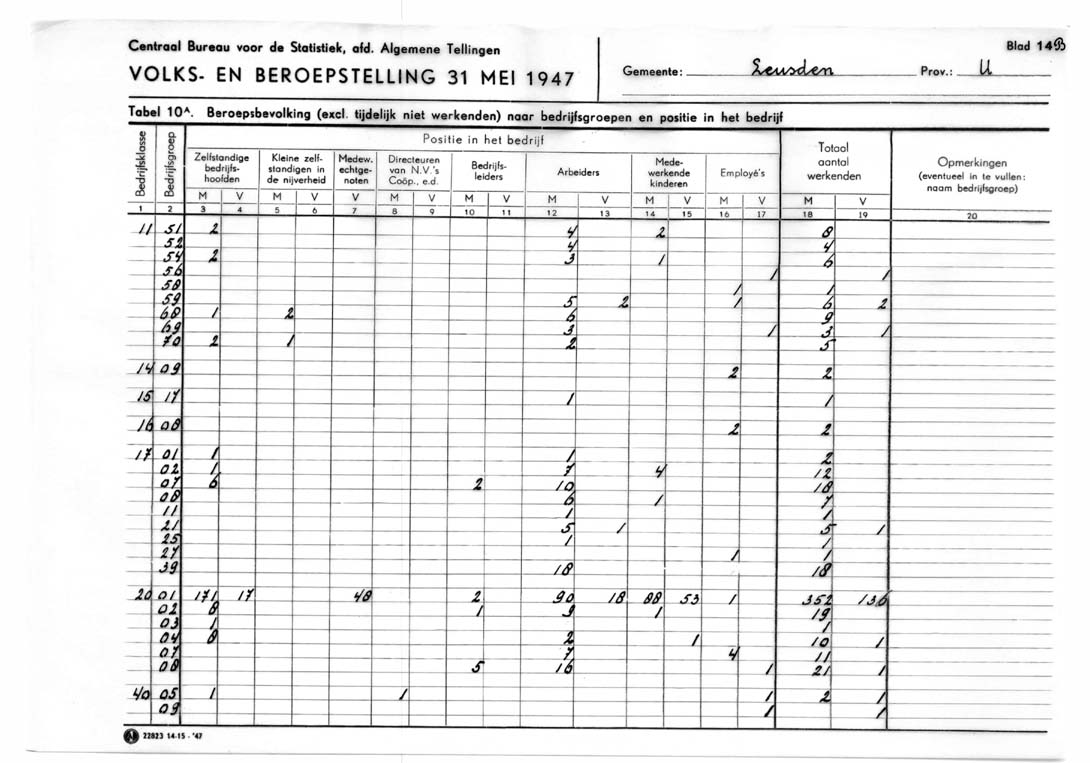 Centraal Bureau voor de Statistiek, afd. Algemene Tellingen
Blad 14B
VOLKS- EN BEROEPSTELLING 31 MEI 1947
Gemeente: Leusden Prov.: U
Tabel 10A. Beroepsbevolking (excl. tijdelijk niet werkenden) naar bedrijfsgroepen en positie in het bedrijf
Bedrijfsklasse
Bedrijfsgroep
Positie in het bedrijf
Zelfstandige bedrijfs-hoofden
Kleine zelf-standigen in de nijverheid
Medew. echtge-noten
Directeuren van N.V.'s Coöp., e.d.
Bedrijfs-leiders
Arbeiders
Mede-werkende kinderen
Employé's
Totaal aantal werkenden
Opmerkingen (eventueel in te vullen: naam bedrijfsgroep)
M V M V V M V M V M V M V M V M V
1 2 3 4 5 6 7 8 9 10 11 12 13 14 15 16 17 18 19 20
11 51 2 4 2 8
52 4 4
54 2 3 1 6
56 1 1
58 1 1
59 5 2 1 6 2
68 1 2 6 9
69 3 1 3 1
70 2 1 2 5
14 09 2 2
15 17 1 1
16 08 2 2
17 01 1 1 2
02 1 7 4 12
07 6 2 10 18
08 6 1 7
11 1 1
21 5 1 5 1
25 1 1
27 1 1
39 18 18
20 01 171 17 48 2 90 18 88 53 1 352 136
02 8 1 9 1 19
03 1 1
04 8 2 1 10 1
07 7 4 11
08 5 16 1 21 1
40 05 1 1 1 2 1
09 1 1
22823 14-15 - '47